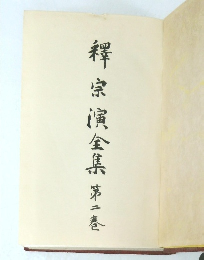 釋宗演全集第二巻